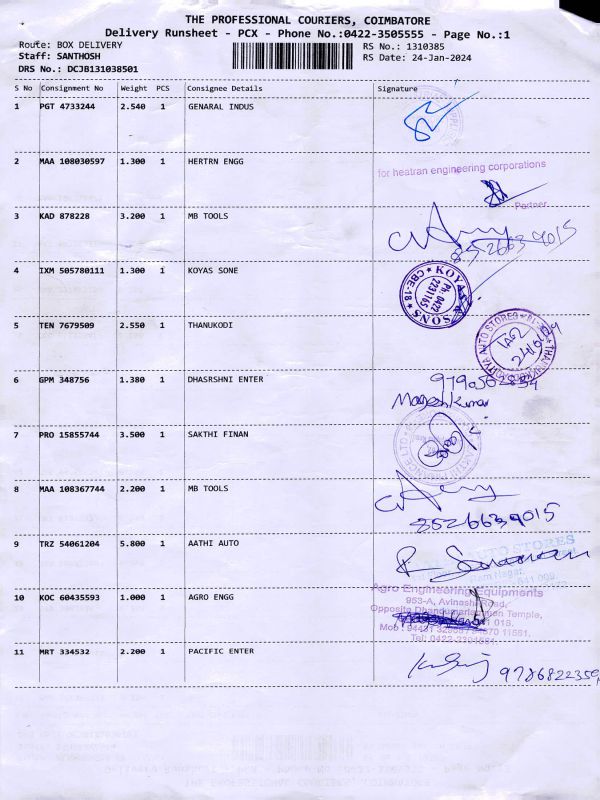 THE PROFESSIONAL COURIERS, COIMBATORE
Delivery Runsheet - PCX - Phone No.:0422-3505555 - Page No.:1
Route: BOX DELIVERY
RS No.: 1310385
Staff: SANTHOSH
RS Date: 24-Jan-2024
DRS No.: DCJB131038501
S No Consignment No Weight PCS Consignee Details Signature
1 PGT 4733244 2.540 1 GENARAL INDUS
2 MAA 108030597 1.300 1 HERTRN ENGG
for heatran engineering corporations
Partner
3 KAD 878228 3.200 1 MB TOOLS
8526639015
4 IXM 505780111 1.300 1 KOYAS SONE
KOYAS SONS CBE-18
Ph: 0422
2231165
5 TEN 7679509 2.550 1 THANUKODI
6 GPM 348756 1.380 1 DHASRSHNI ENTER
Mageshkumar
7 PRO 15855744 3.500 1 SAKTHI FINAN
8 MAA 108367744 2.200 1 MB TOOLS
8526639015
9 TRZ 54061204 5.800 1 AATHI AUTO
AUTO STORES
10 KOC 60435593 1.000 1 AGRO ENGG
Agro Engineering Equipments
953-A, Avinashi Road,
Opposite Dhandumariamman Temple,
11 MRT 334532 2.200 1 PACIFIC ENTER
9786822359